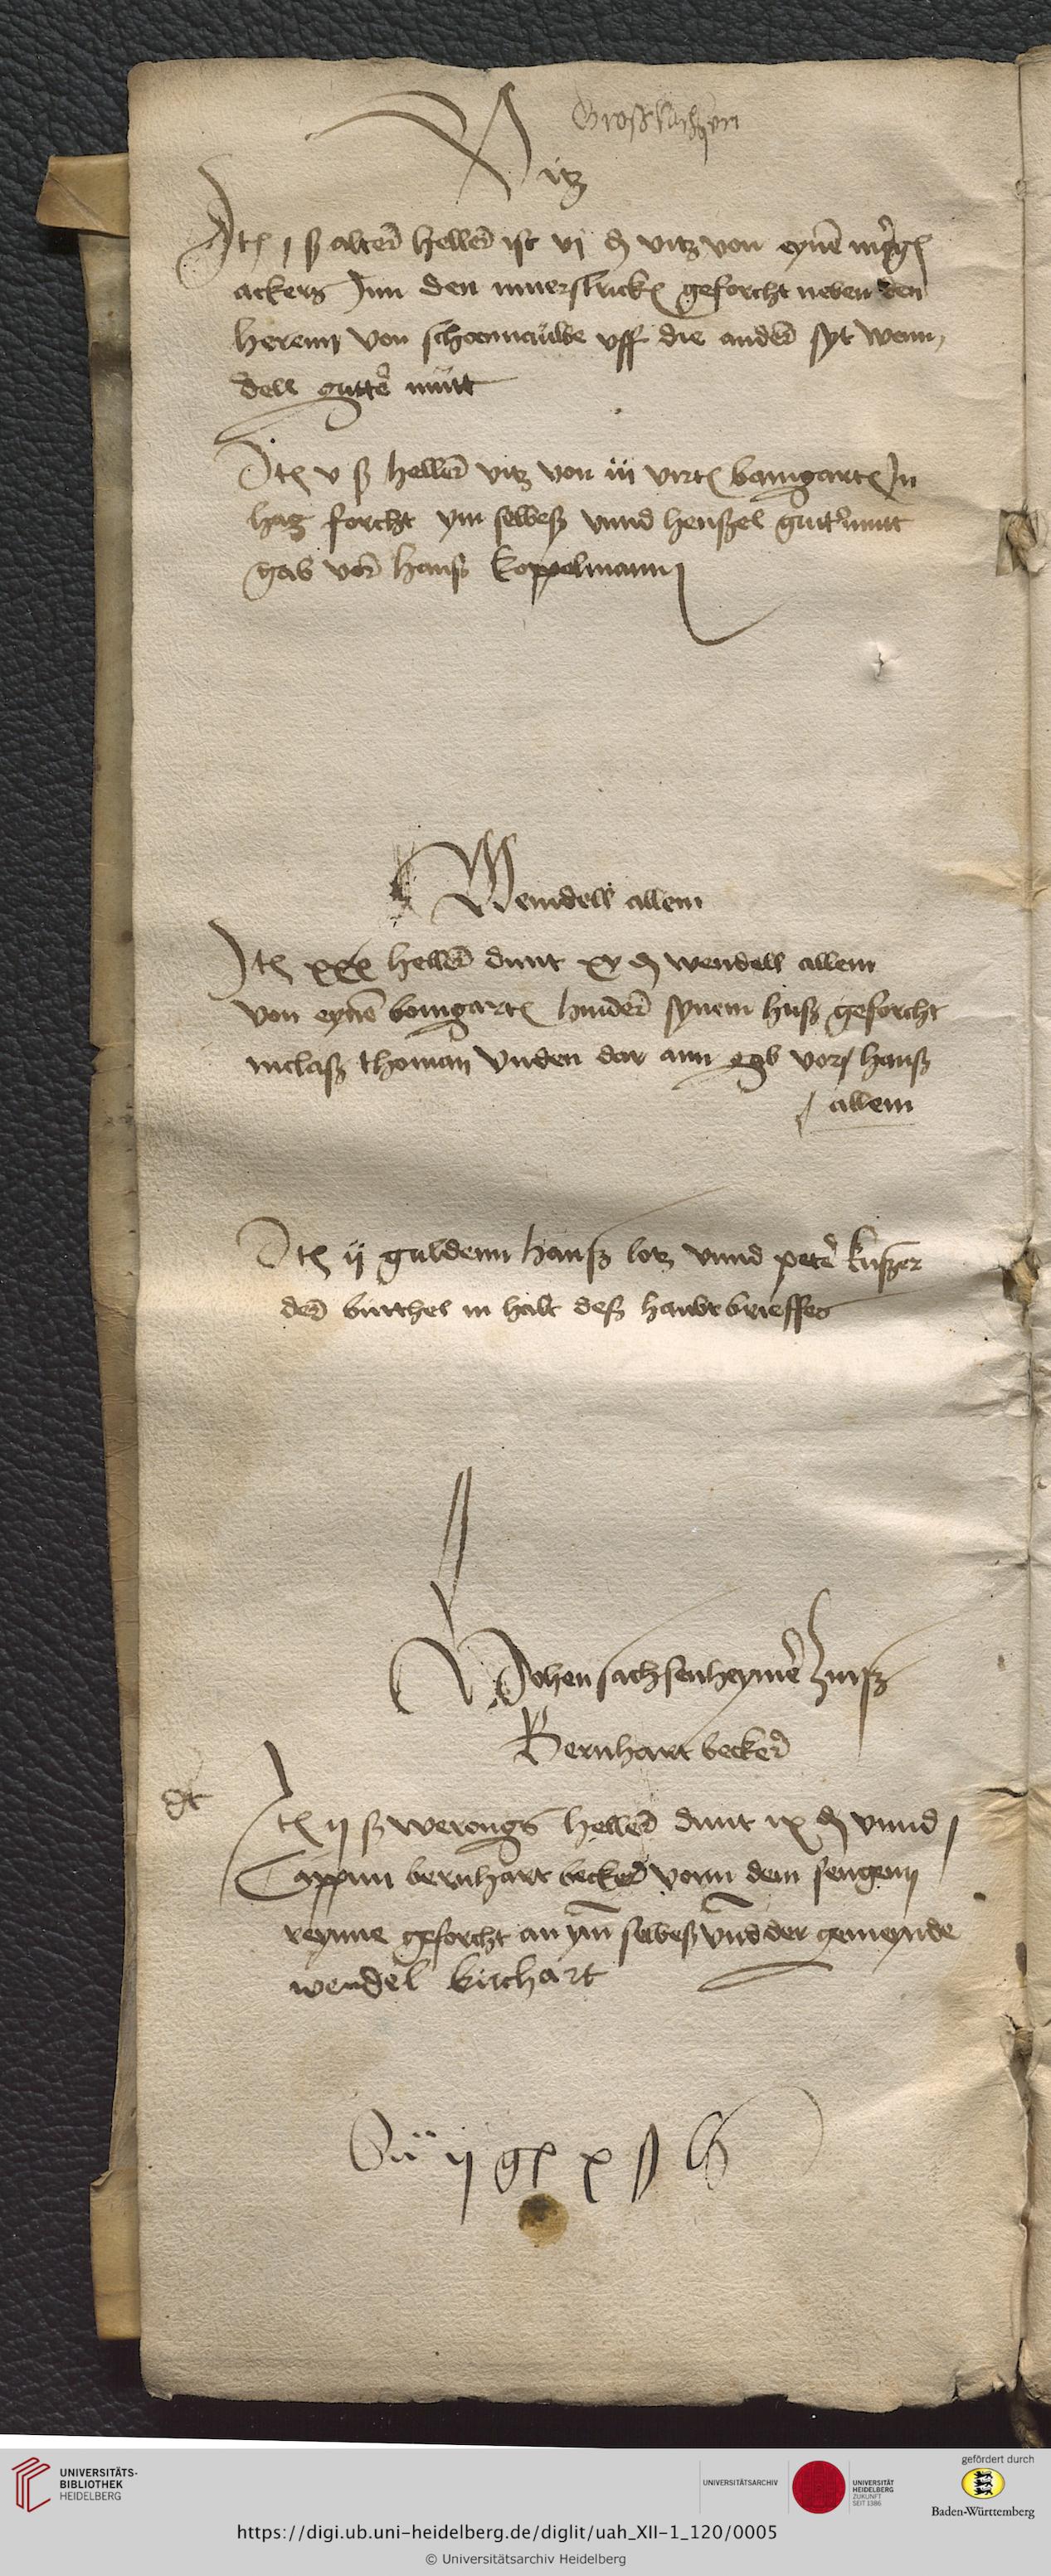 Großsachßen
Vitz
Jtem j ß alter heller ist vj ₰ vitz von eynem morgen
ackers Jnn den geforcht neben den
herenn von schonnaüwe vff die ander syt wenn,
dell gutter mütt
Jtem v ß heller vitz von iij virtel bamgarten Jn
hag forcht ym selbeß vnnd henßel gutermutt
gab vor hanß koppelmann
Wenndell allem
Jtem xxx heller dunt xv ₰ wendell allem
von eynem bomgarten hinder synem huß geforcht
niclaß thoman vnden dar ann gab vor hanß
allem
Jtem ij guldenn hanß lotz vnnd peter
der burchel in halt deß haubtbrieffes
Hohensachsenheymer Zinß
Bernhart becker
dt
Jtem ij ß werongs heller dunt ix ₰ vnnd j
Cappun bernhart becker vonn dem sengenn
reynne geforcht an ym selbeß vnd der gemeynde
wendel kirchart
Sü ij gl x ß
UNIVERSITÄTS-
BIBLIOTHEK
HEIDELBERG
UNIVERSITÄTSARCHIV
UNIVERSITÄT
HEIDELBERG
ZUKUNFT
SEIT 1386
gefördert durch
Baden-Württemberg
https://digi.ub.uni-heidelberg.de/diglit/uah_XII-1_120/0005
© Universitätsarchiv Heidelberg